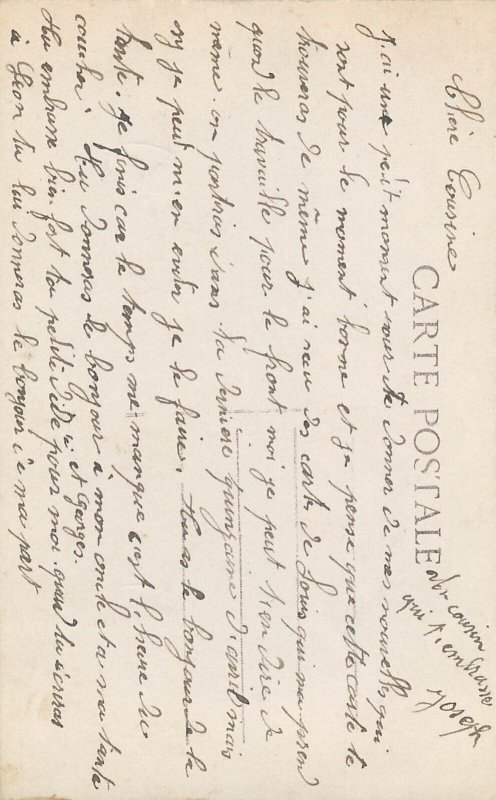 Chère Cousine
CARTE POSTALE
J'ai une petit moment pour te donner de mes nouvelles qui
sont pour le moment bonne et je pense que cette carte te
trouveras de même j'ai reçu des carte de Louis qui ma prend
quand le travaille pour le front moi je peut t'en dire de
même on partira dans la dernière quinzaine d'avril mais
si je peut m'en evder je le faire. tu as le bonjour de la
tante. Je finis car le temps me manque c'est l'heure du
coucher tu donneras le bonjour à mon oncle et a ma tante
et Georges.
tu embrasse bien fort ta petite pour moi. quand tu écriras
à Léon tu lui donneras le bonjour de ma part
ton cousin
qui t'embrasse
Joseph